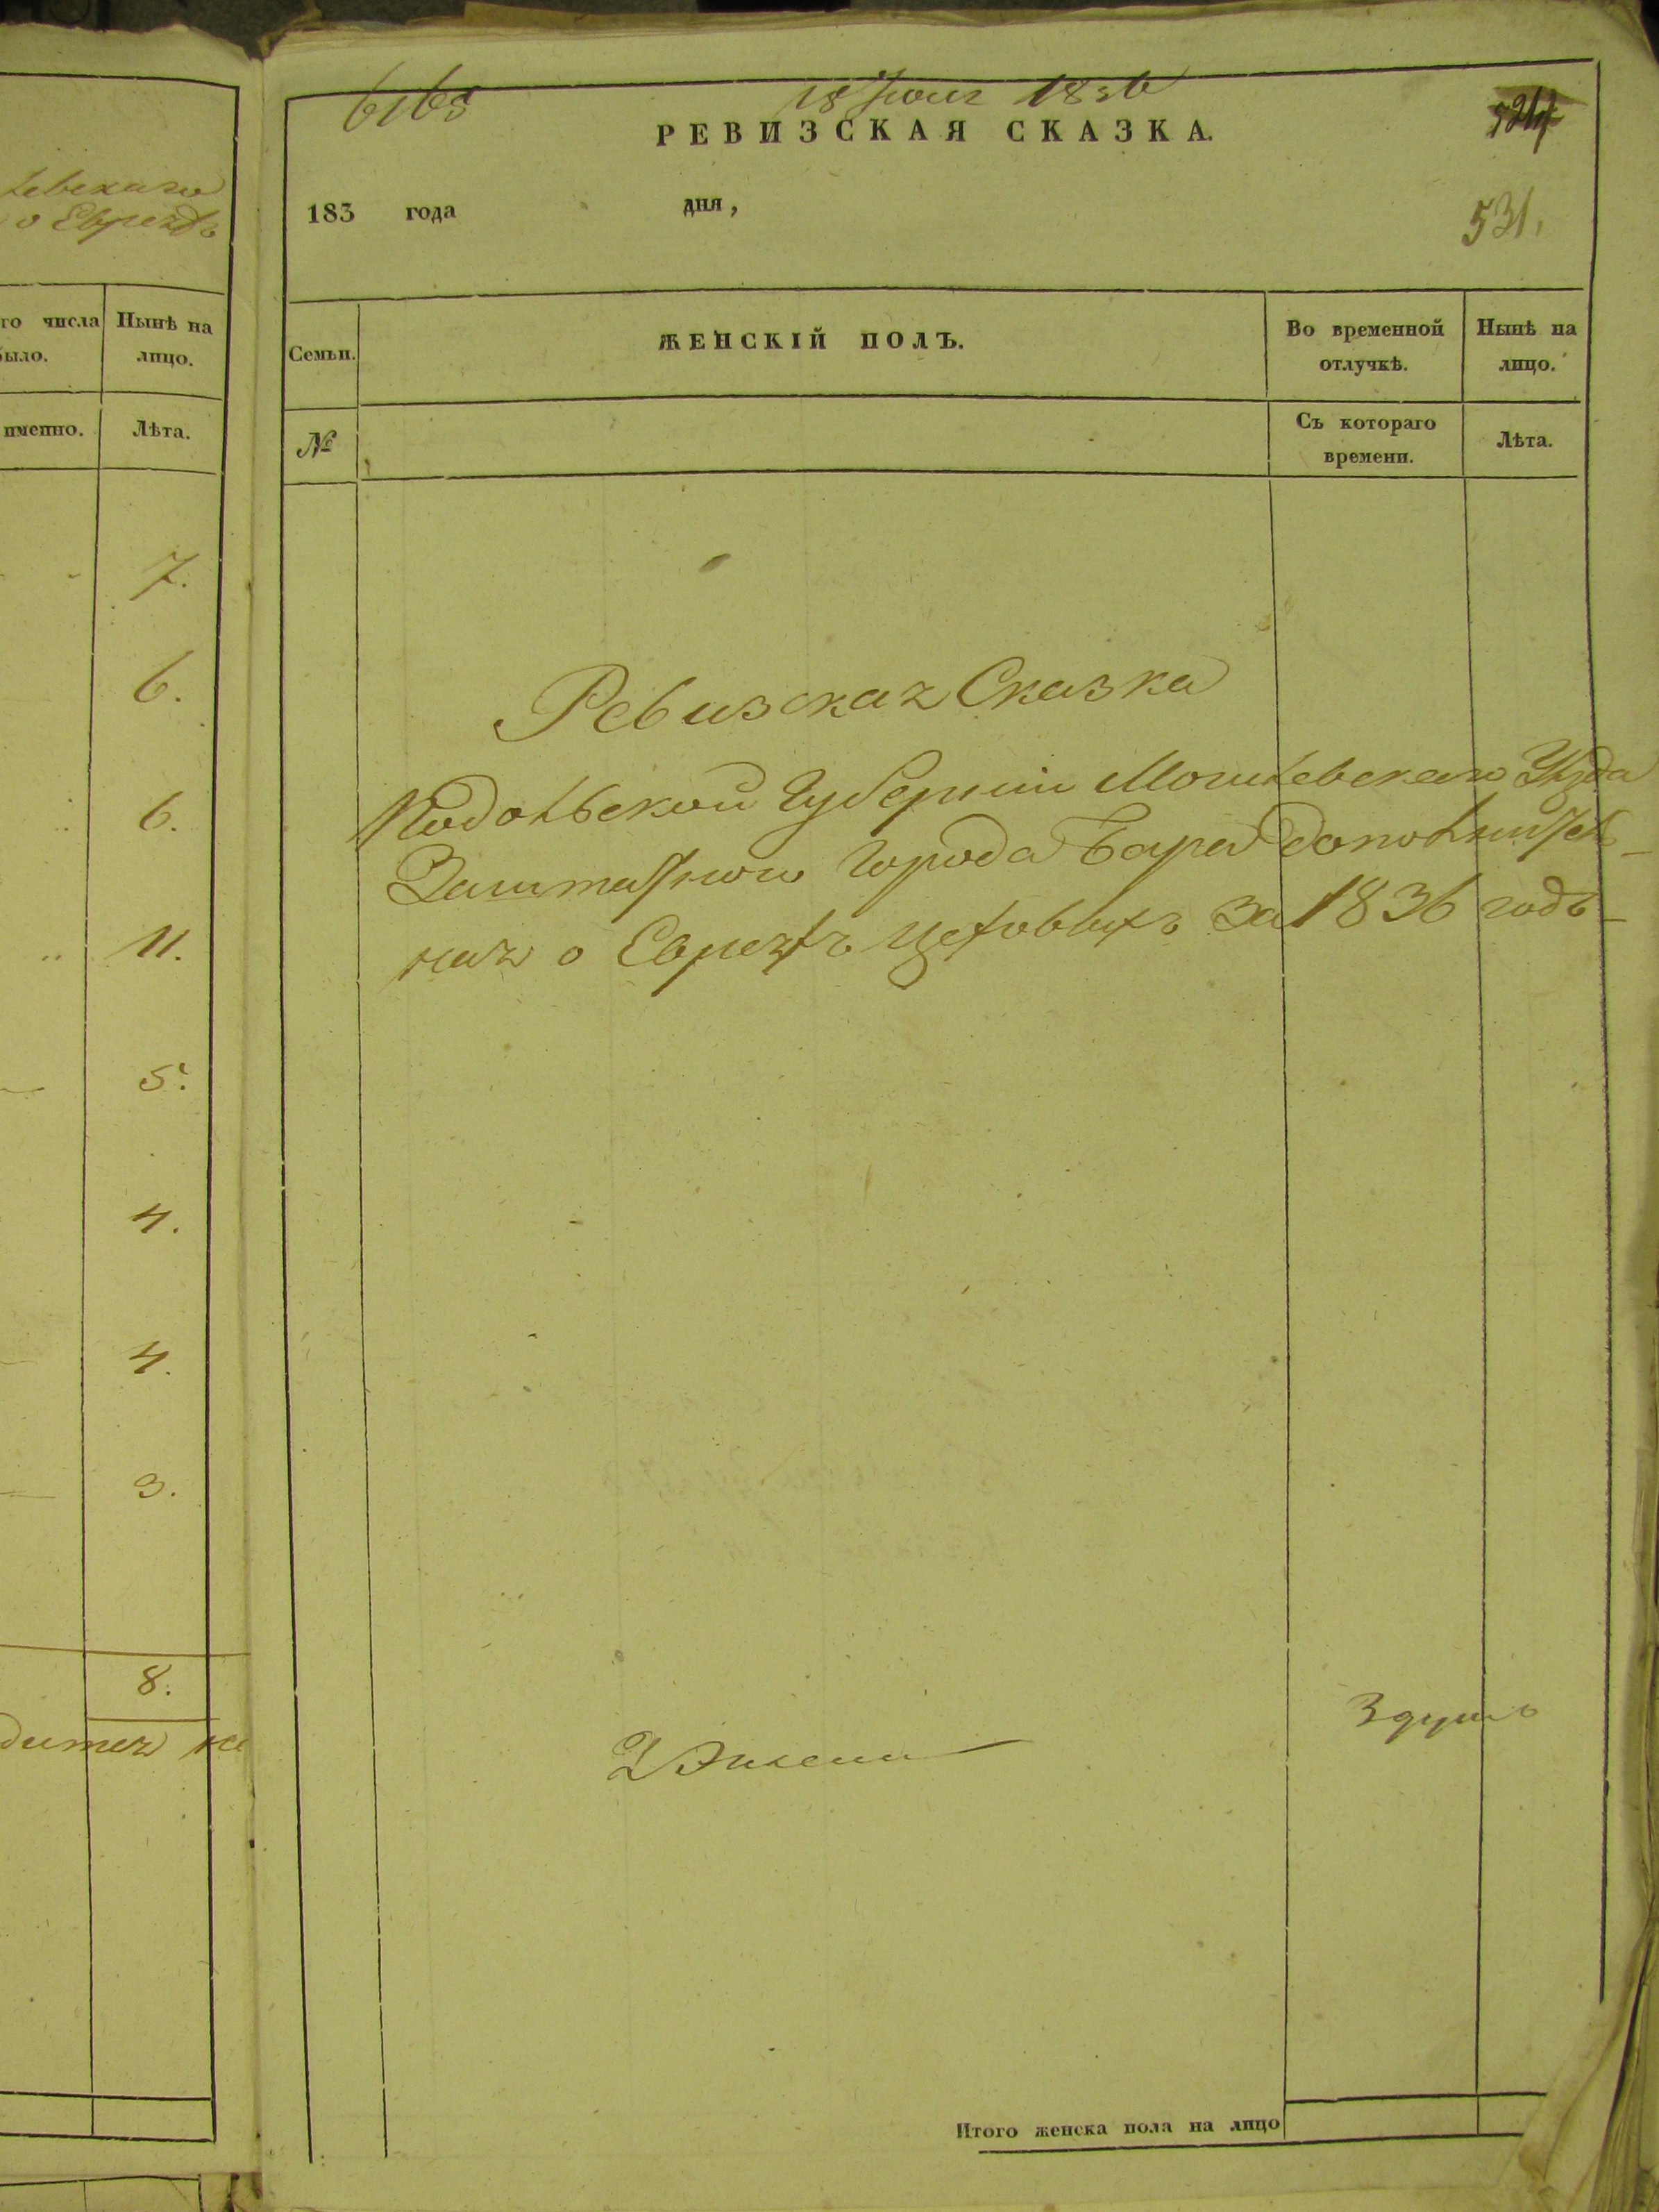 левскаго
о Евреяхъ
го числа
было.
Нынѣ на
лицо.
именно.
Лѣта.
7.
6.
6.
11.
5.
4.
4.
3.
8.
6165
18 Іюня 1836
РЕВИЗСКАЯ СКАЗКА.
183 года дня,
531.
Семьи.
ЖЕНСКІЙ ПОЛЪ.
Во временной
отлучкѣ.
Нынѣ на
лицо.
№
Съ котораго
времени.
Лѣта.
Ревизская Сказка
Подольской Губерніи Могилевскаго Уѣзда
Заштатнаго Города Бара дополнитель-
ная о Евреяхъ цеховыхъ за 1836 годъ
3 душъ
Итого женска пола на лицо